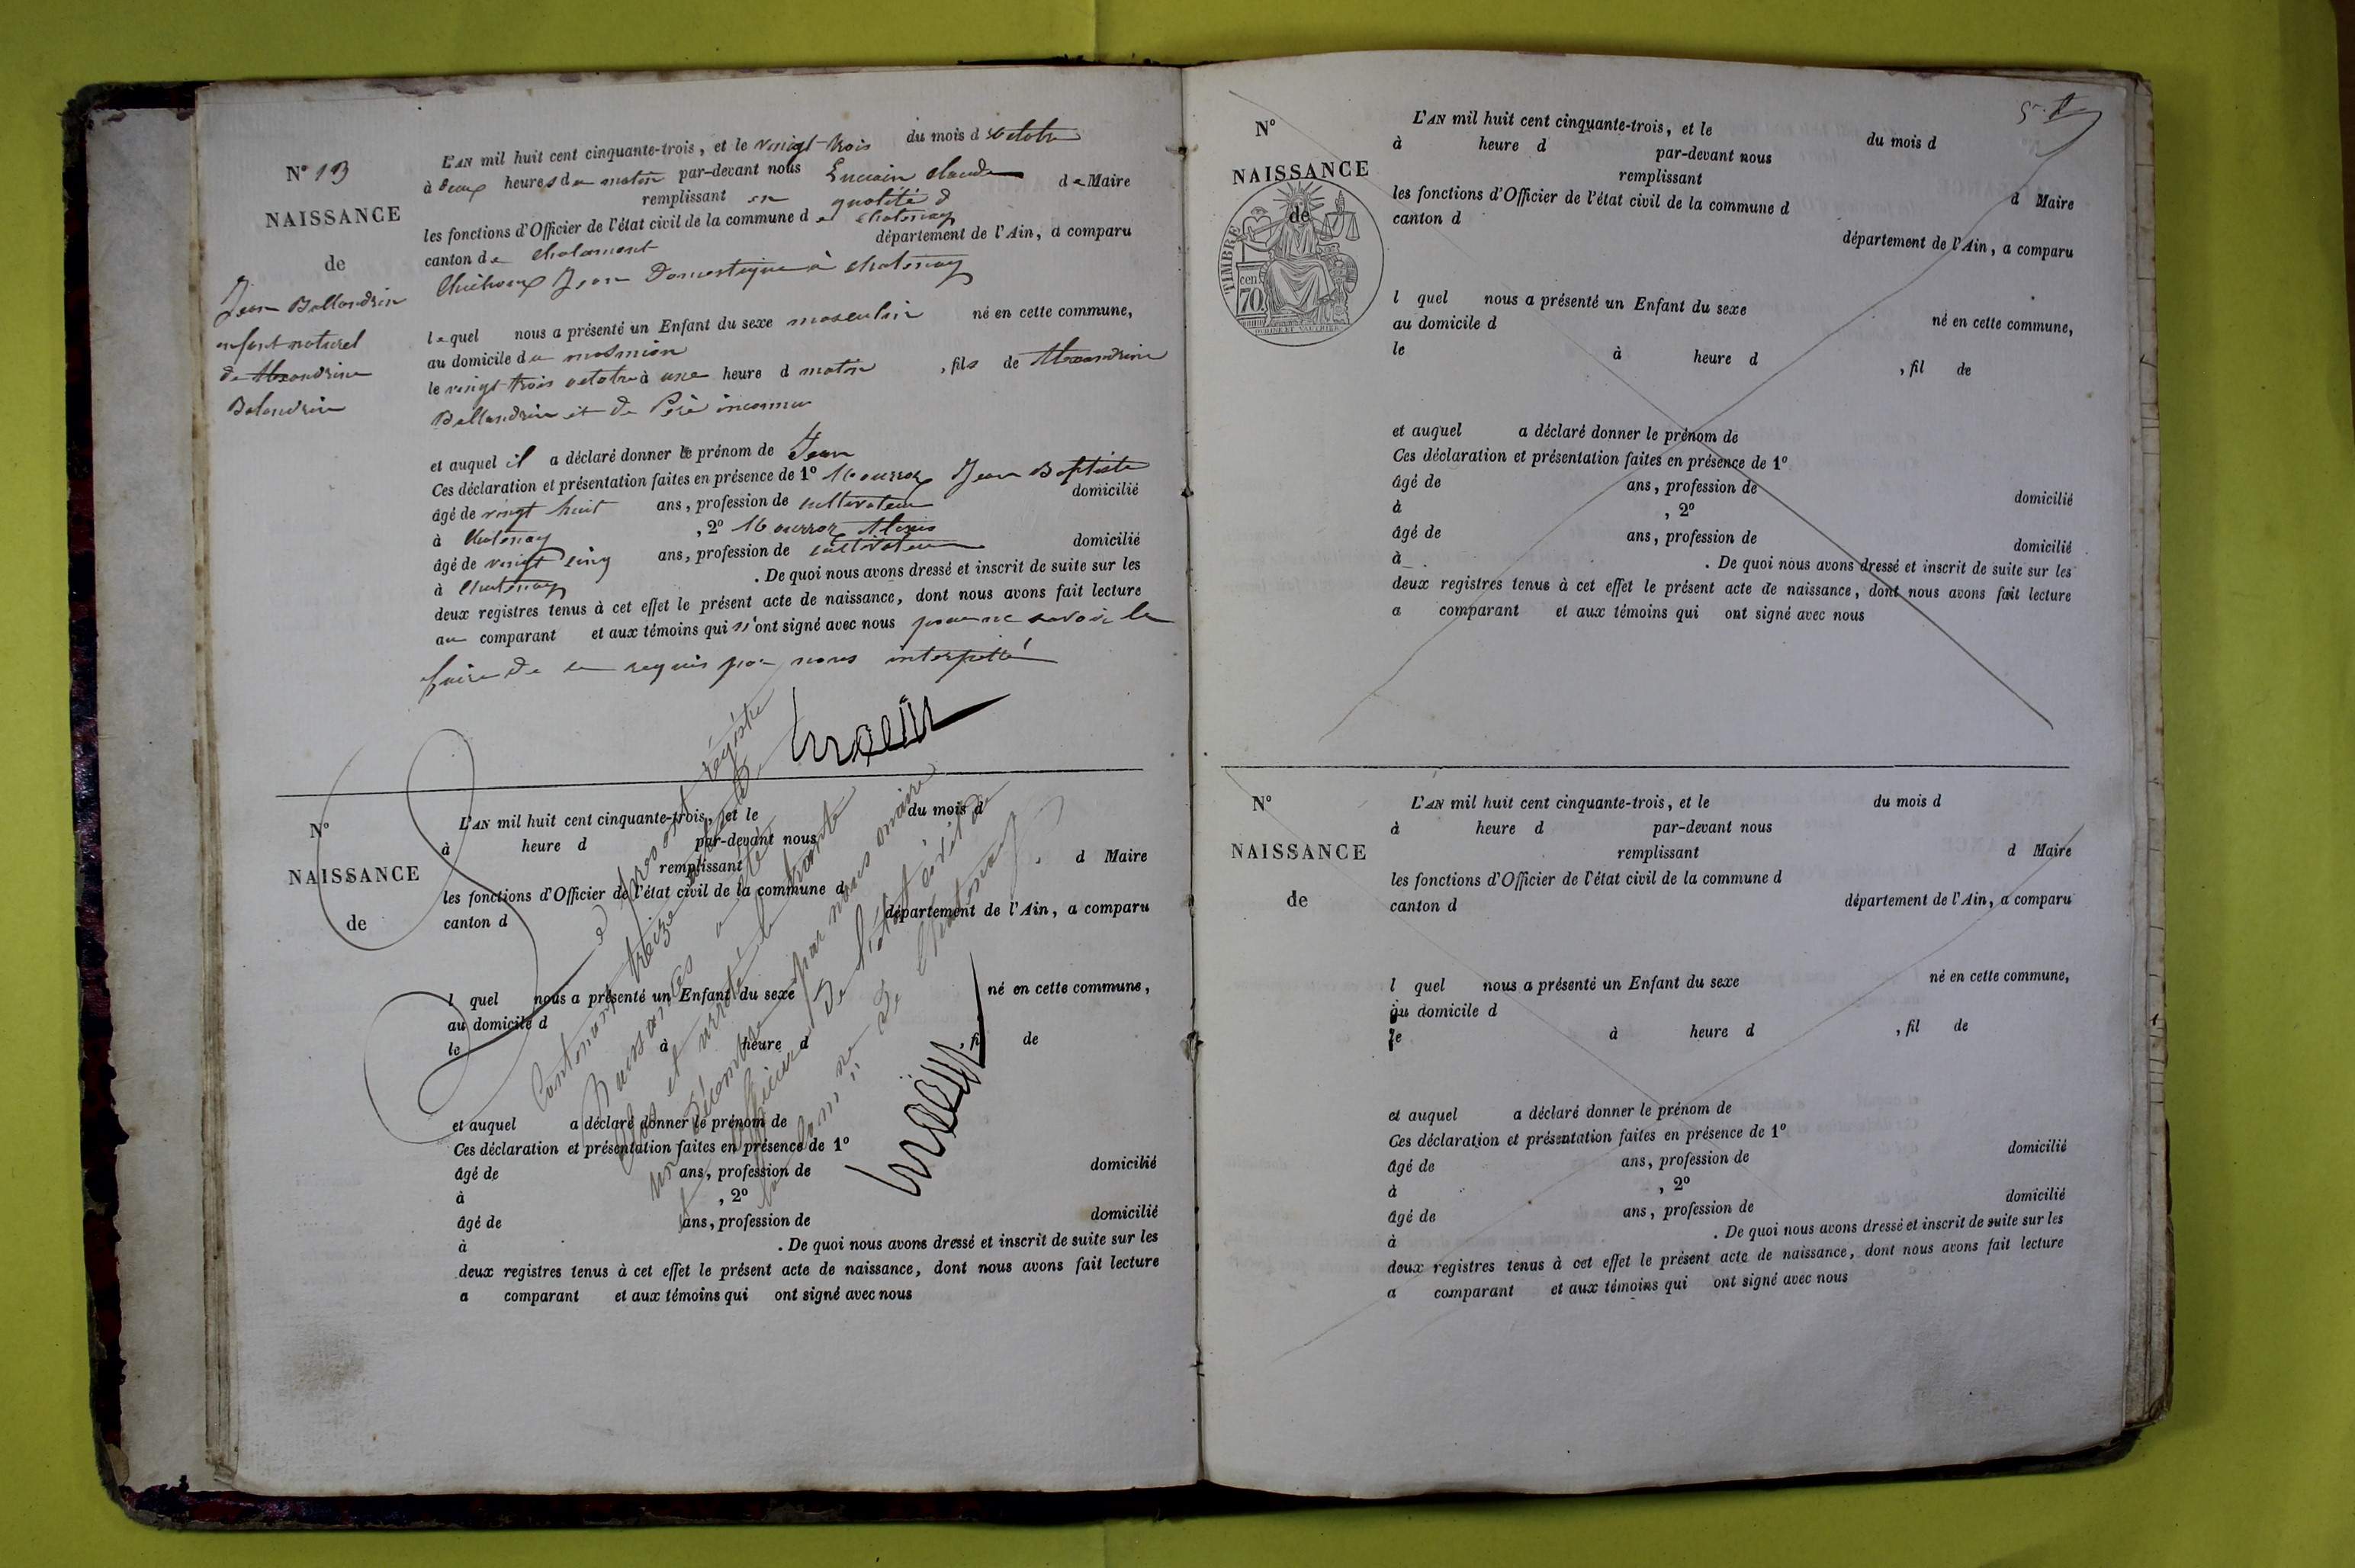 N° 13
NAISSANCE
de
Jean Ballandrin
enfant naturel
de Alexandrine
Balandrin
L'AN mil huit cent cinquante-trois, et le vingt-trois du mois d octobre
à deux heures du matin par-devant nous Claude
remplissant en qualité d de Maire
les fonctions d'Officier de l'état civil de la commune de chatenay
canton de Chalamont département de l'Ain, a comparu
Jean Domestique à chatenay
lequel nous a présenté un Enfant du sexe masculin né en cette commune,
au domicile du
le vingt trois octobre à une heure d matin , fils de Alexandrine
Ballandrin et de Père inconnu
et auquel il a déclaré donner le prénom de Jean
Ces déclaration et présentation faites en présence de 1° Jean Baptiste
âgé de vingt huit ans, profession de cultivateur domicilié
à Chatenay , 2° Alexis
âgé de vingt cinq ans, profession de cultivateur domicilié
à Chatenay . De quoi nous avons dressé et inscrit de suite sur les
deux registres tenus à cet effet le présent acte de naissance, dont nous avons fait lecture
au comparant et aux témoins qui n'ont signé avec nous pour ne savoir le
faire de ce requis par nous interpellé
N°
NAISSANCE
de
L'AN mil huit cent cinquante-trois, et le du mois d
à heure d par-devant nous
remplissant d Maire
les fonctions d'Officier de l'état civil de la commune d
canton d département de l'Ain, a comparu
l quel nous a présenté un Enfant du sexe né en cette commune,
au domicile d
le à heure d , fil de
et auquel a déclaré donner le prénom de
Ces déclaration et présentation faites en présence de 1°
âgé de ans, profession de domicilié
à , 2°
âgé de ans, profession de domicilié
à . De quoi nous avons dressé et inscrit de suite sur les
deux registres tenus à cet effet le présent acte de naissance, dont nous avons fait lecture
a comparant et aux témoins qui ont signé avec nous
le présent régistre
Contenant treize
Naissances a été
clos et arrêté le trente
un décembre par nous maire
et officier de l'état civil de
la commune de Chatenay
N°
NAISSANCE
de
TIMBRE
70 cen
L'AN mil huit cent cinquante-trois, et le du mois d
à heure d par-devant nous
remplissant d Maire
les fonctions d'Officier de l'état civil de la commune d
canton d département de l'Ain, a comparu
l quel nous a présenté un Enfant du sexe né en cette commune,
au domicile d
le à heure d , fil de
et auquel a déclaré donner le prénom de
Ces déclaration et présentation faites en présence de 1°
âgé de ans, profession de domicilié
à , 2°
âgé de ans, profession de domicilié
à . De quoi nous avons dressé et inscrit de suite sur les
deux registres tenus à cet effet le présent acte de naissance, dont nous avons fait lecture
a comparant et aux témoins qui ont signé avec nous
N°
NAISSANCE
de
L'AN mil huit cent cinquante-trois, et le du mois d
à heure d par-devant nous
remplissant d Maire
les fonctions d'Officier de l'état civil de la commune d
canton d département de l'Ain, a comparu
l quel nous a présenté un Enfant du sexe né en cette commune,
au domicile d
le à heure d , fil de
et auquel a déclaré donner le prénom de
Ces déclaration et présentation faites en présence de 1°
âgé de ans, profession de domicilié
à , 2°
âgé de ans, profession de domicilié
à . De quoi nous avons dressé et inscrit de suite sur les
deux registres tenus à cet effet le présent acte de naissance, dont nous avons fait lecture
a comparant et aux témoins qui ont signé avec nous